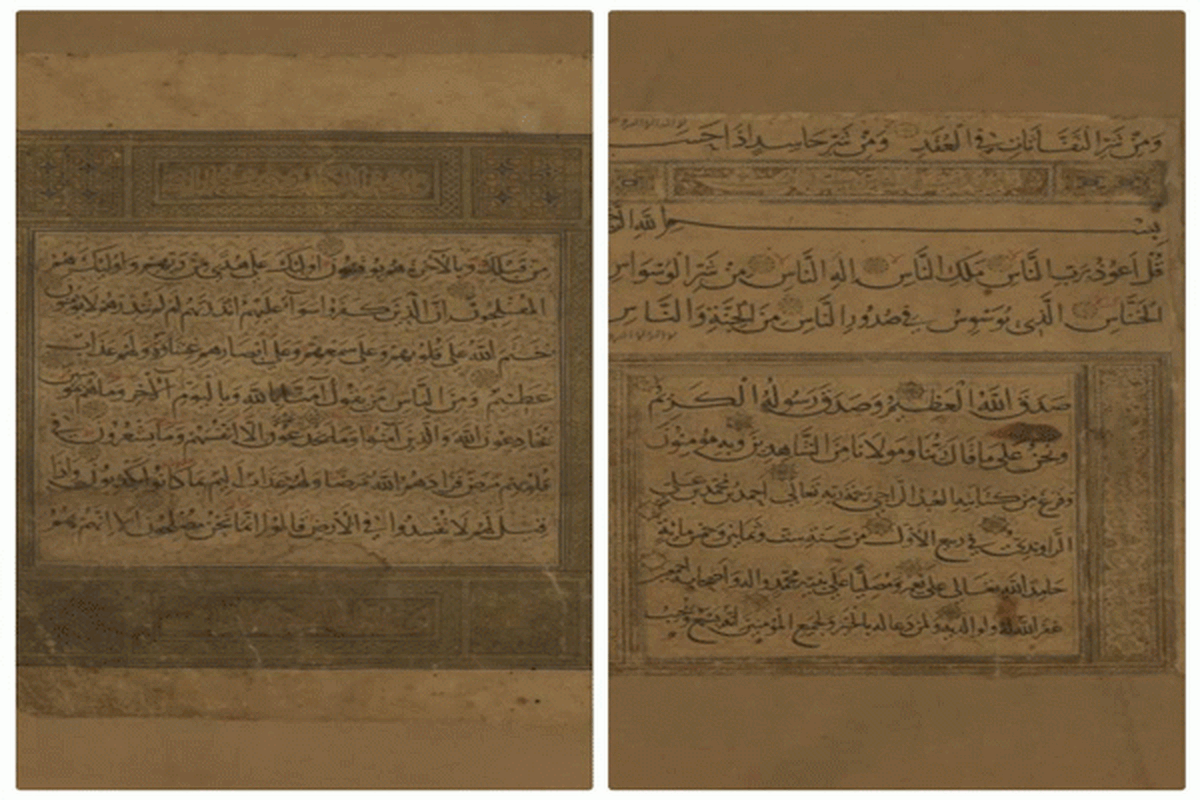 من قبلك وبالآخرة هم يوقنون اولئك على هدى من ربهم واولئك هم
المفلحون ان الذين كفروا سوآء عليهم أنذرتهم ام لم تنذرهم لا يؤمنون
ختم الله على قلوبهم وعلى سمعهم وعلى ابصارهم غشاوة ولهم عذاب
عظيم ومن الناس من يقول آمنا بالله وباليوم الآخر وما هم بمؤمنين
يخادعون الله والذين آمنوا وما يخدعون الا انفسهم وما يشعرون في
قلوبهم مرض فزادهم الله مرضا ولهم عذاب اليم بما كانوا يكذبون واذا
قيل لهم لا تفسدوا في الارض قالوا انما نحن مصلحون الا انهم هم
وَمِنْ شَرِّ النَّفَّاثَاتِ فِي الْعُقَدِ وَمِنْ شَرِّ حَاسِدٍ اِذَا حَسَدَ
بسم الله
قُلْ اَعُوذُ بِرَبِّ النَّاسِ مَلِكِ النَّاسِ اِلٰهِ النَّاسِ مِنْ شَرِّ الْوَسْوَاسِ
الْخَنَّاسِ الَّذِي يُوَسْوِسُ فِي صُدُورِ النَّاسِ مِنَ الْجِنَّةِ وَالنَّاسِ
صَدَقَ اللهُ الْعَظِيمُ وَصَدَقَ رَسُولُهُ الْكَرِيمُ
ونحن على ما قال ربنا ومولانا من الشاهدين وبه مؤمنون
وفرغ من كتابته العبد الراجي رحمة ربه تعالى احمد بن محمد بن علي
الراوندي في ربيع الاول من سنة ست وثمانين وخمس مائة
حامدا لله تعالى على نعمه ومصليا على نبيه محمد واله واصحابه اجمعين
غفر الله له ولوالديه ولمن دعا له بالخير ولجميع المؤمنين